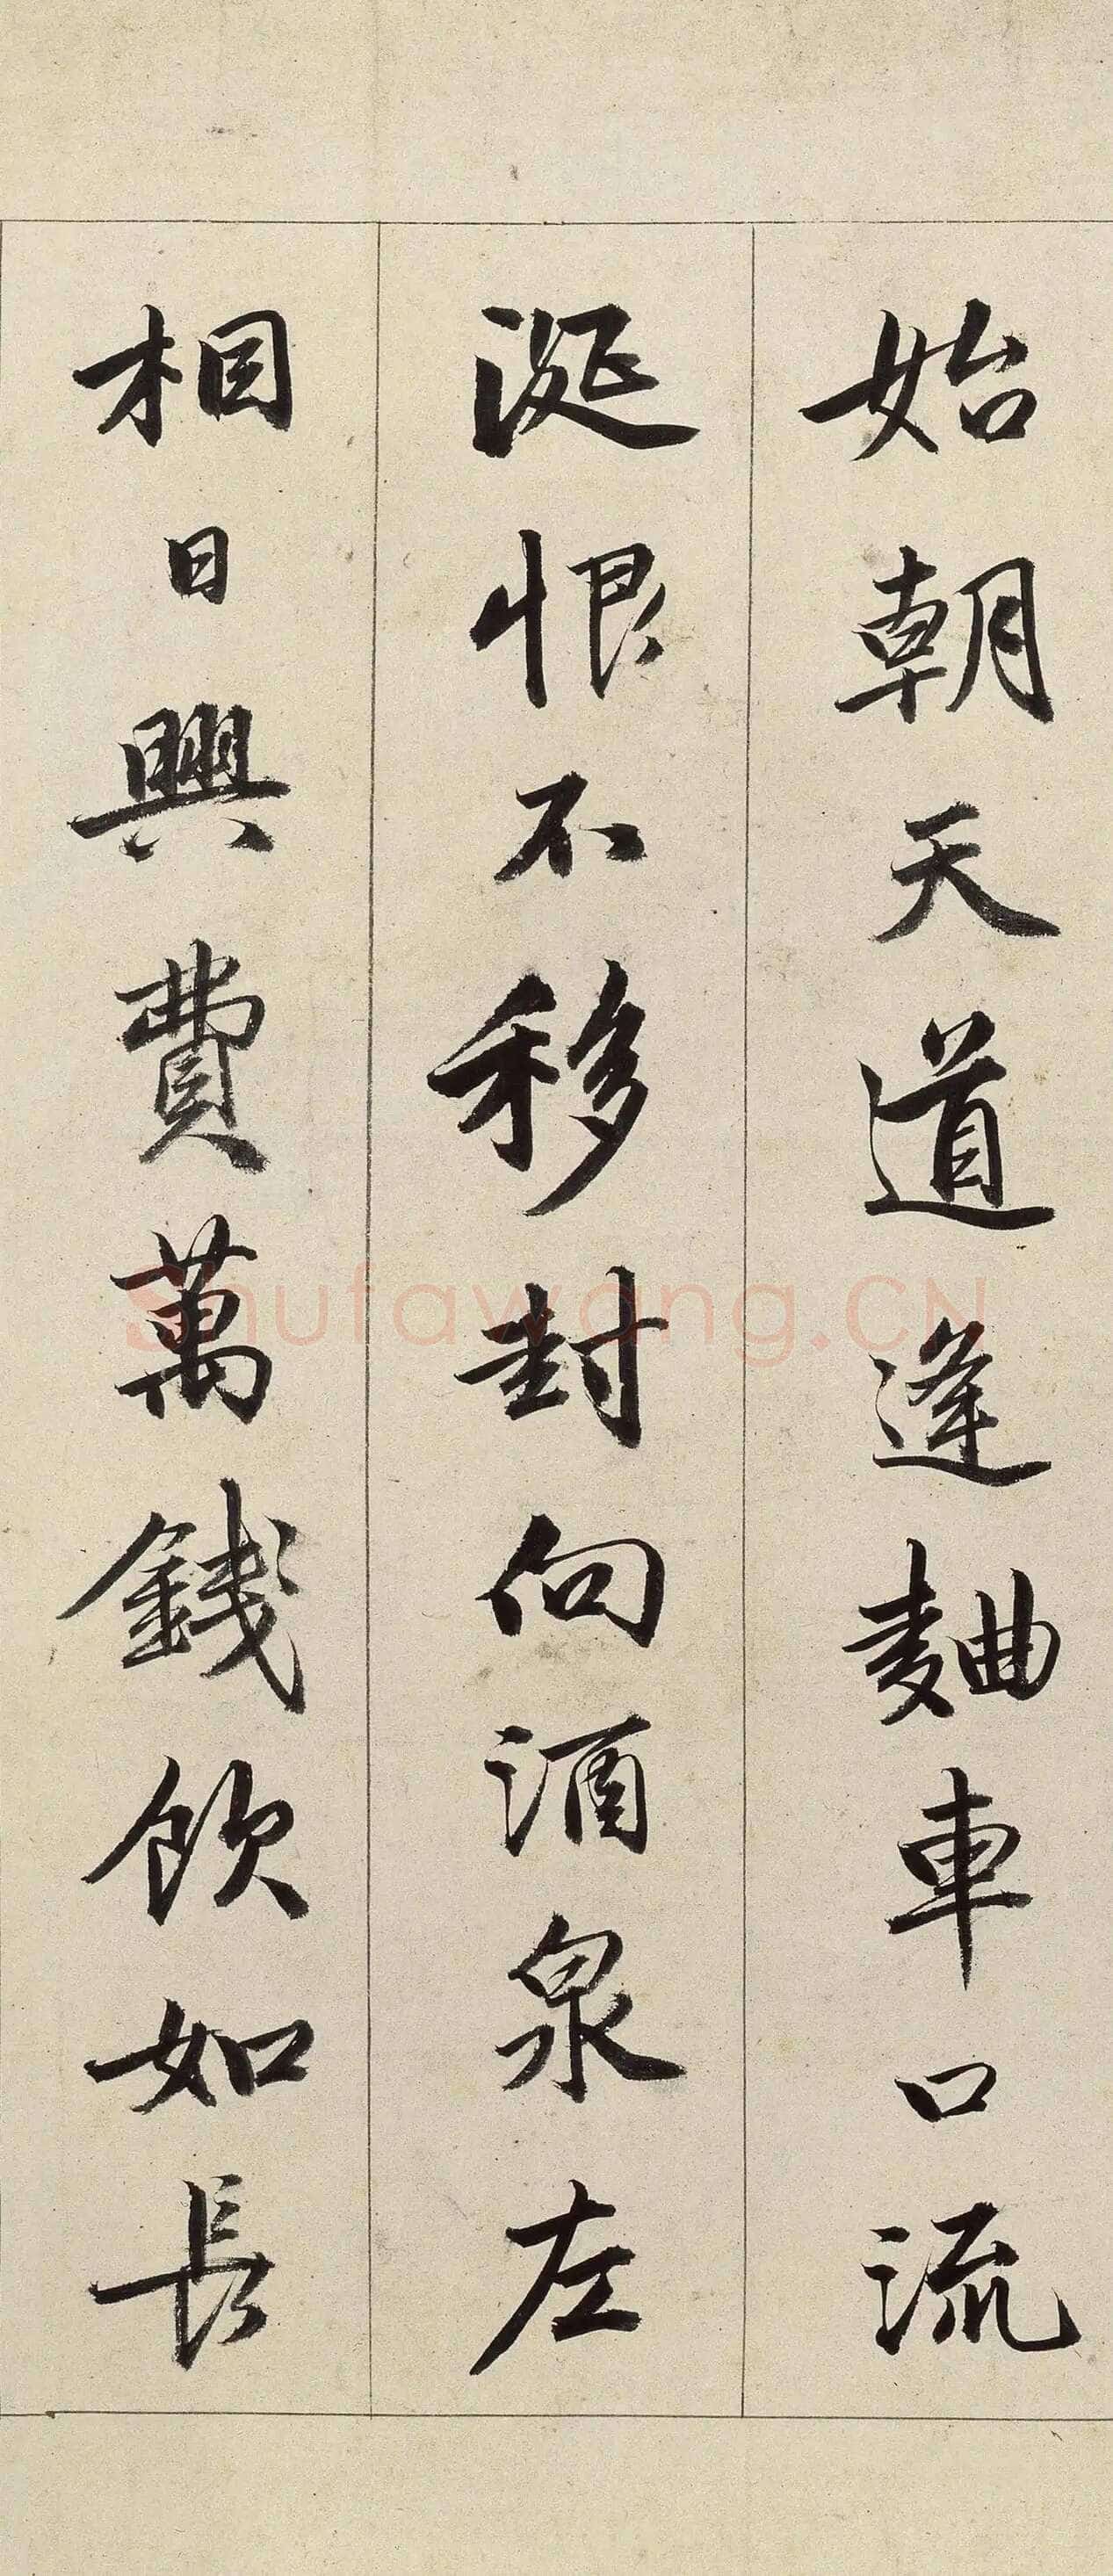 始朝天道逢麯車口流
涎恨不移封向酒泉左
相日興費萬錢飲如長
shufawang.CN